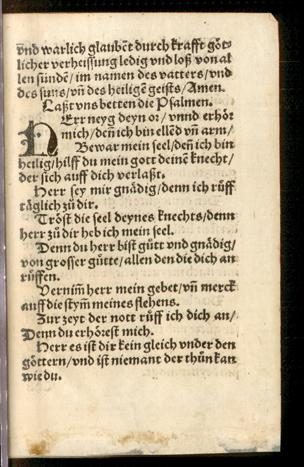 vnd warlich glaubēt durch krafft gŏt⸗
licher verheissung ledig vnd loß von al
len sundē/ im namen des vatters/vnd
des suns/vñ des heiligē geists/Amen.
Laßt vns betten die Psalmen.
HErr neyg deyn or/ vnnd erhŏr
mich/deñ ich bin ellēd vñ arm/
Bewar mein seel/deñ ich bin
heilig/hilff du mein gott deinē knecht/
der sich auff dich verlaßt.
Herr sey mir gnådig/denn ich růff
tåglich zů dir.
Trŏst die seel deynes knechts/denn
herr zů dir heb ich mein seel.
Denn du herr bist gůtt vnd gnådig/
von grosser gůtte/allen den die dich an
růffen.
Vernim̄ herr mein gebet/vñ merck
auff die stym̄ meines flehens.
Zur zeyt der nott růff ich dich an/
Denn du erhŏrest mich.
Herr es ist dir kein gleich vnder den
gŏttern/vnd ist niemant der thůn kan
wie du.